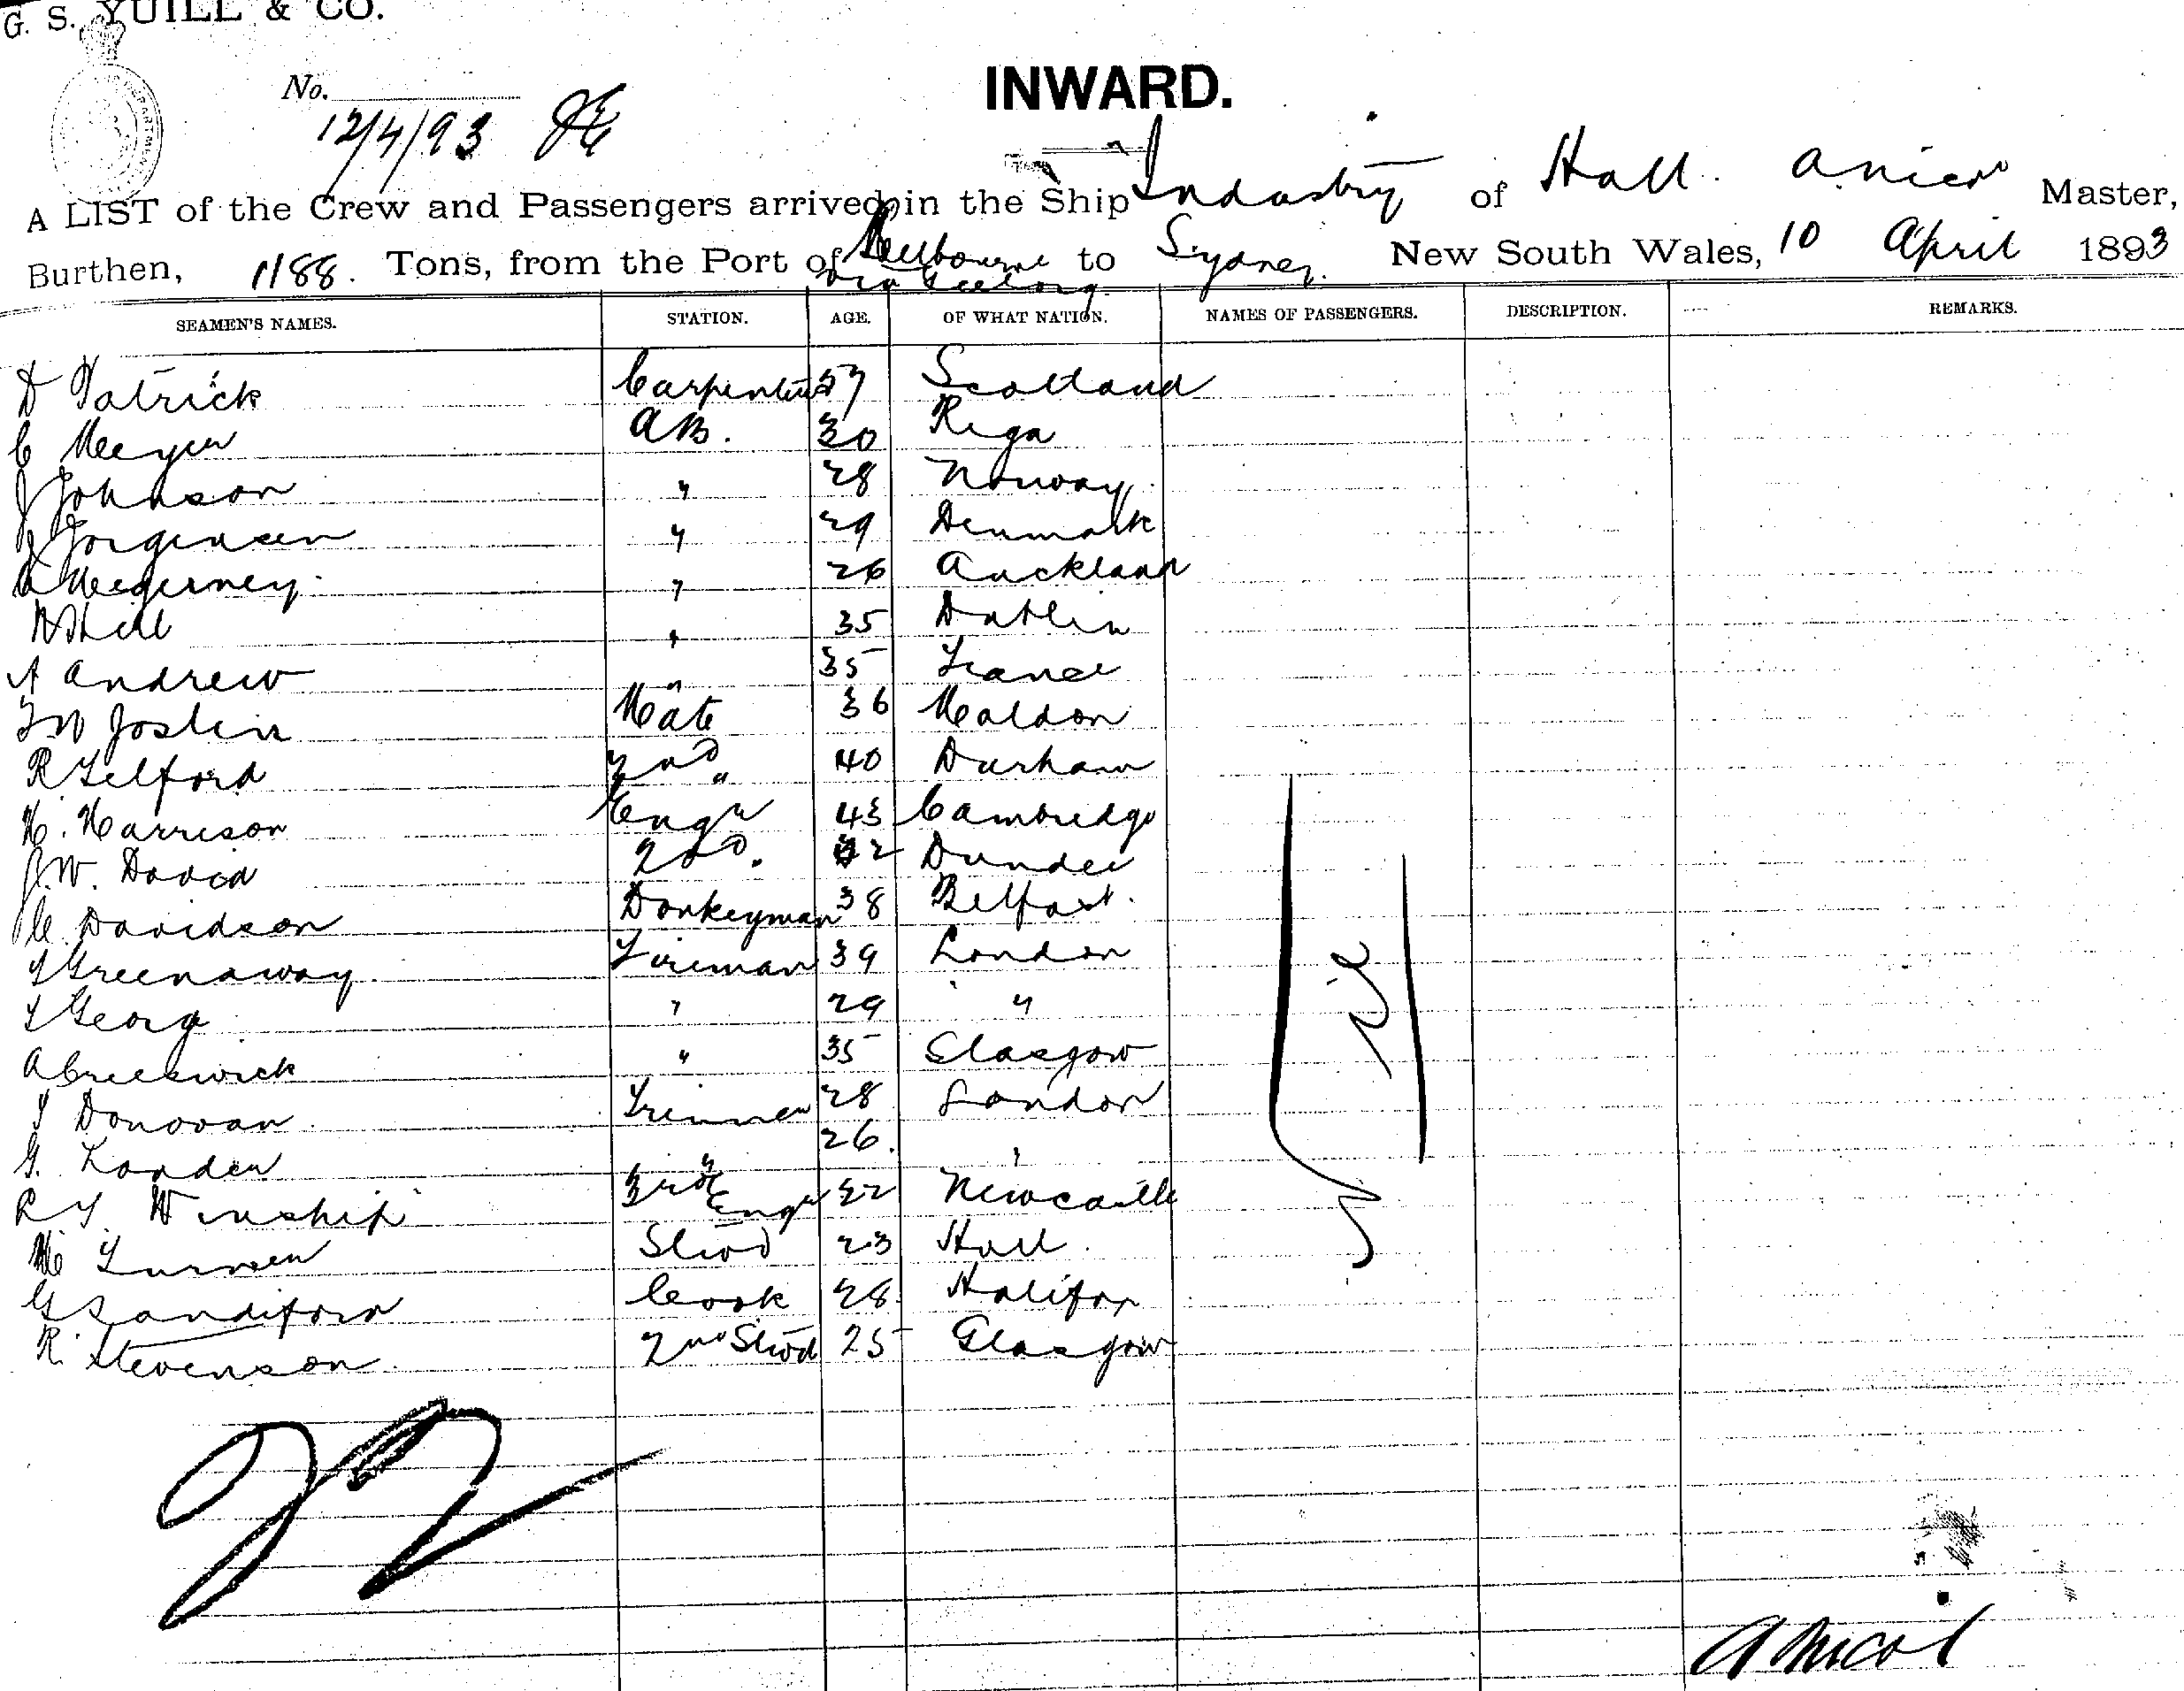 G. S. YUILL & CO.
No.
12/4/93
INWARD.
A LIST of the Crew and Passengers arrived in the Ship Industry of Hull. A Nicol Master,
Burthen, 1188. Tons, from the Port of Melbourne to Sydney. New South Wales, 10 April 1893
via Geelong
SEAMEN'S NAMES. STATION. AGE. OF WHAT NATION. NAMES OF PASSENGERS. DESCRIPTION. REMARKS.
D Patrick Carpenter 57 Scotland
C Meyer AB. 30 Riga
J Johnson " 28 Norway
J Jorgensen " 29 Denmark
" 26 Auckland
" 35 Dublin
A Andrew " 35 France
Mate 36 Maldon
R Telford 2nd " 40 Durham
H. Harrison Engr 43 Cambridge
J.W. David 2nd. Dundee
C Davidson Donkeyman 38 Belfast.
Greenaway Fireman 39 London
George " 29 "
" 35 Glasgow
Donovan Trimmer 28 London
G. " 26. "
R Winship 3rd Engr 32 Newcastle
Stwd 23 Hull.
G Sandiford Cook 28 Halifax
R. Stevenson 2nd Stwd 25 Glasgow
Nil
A Nicol